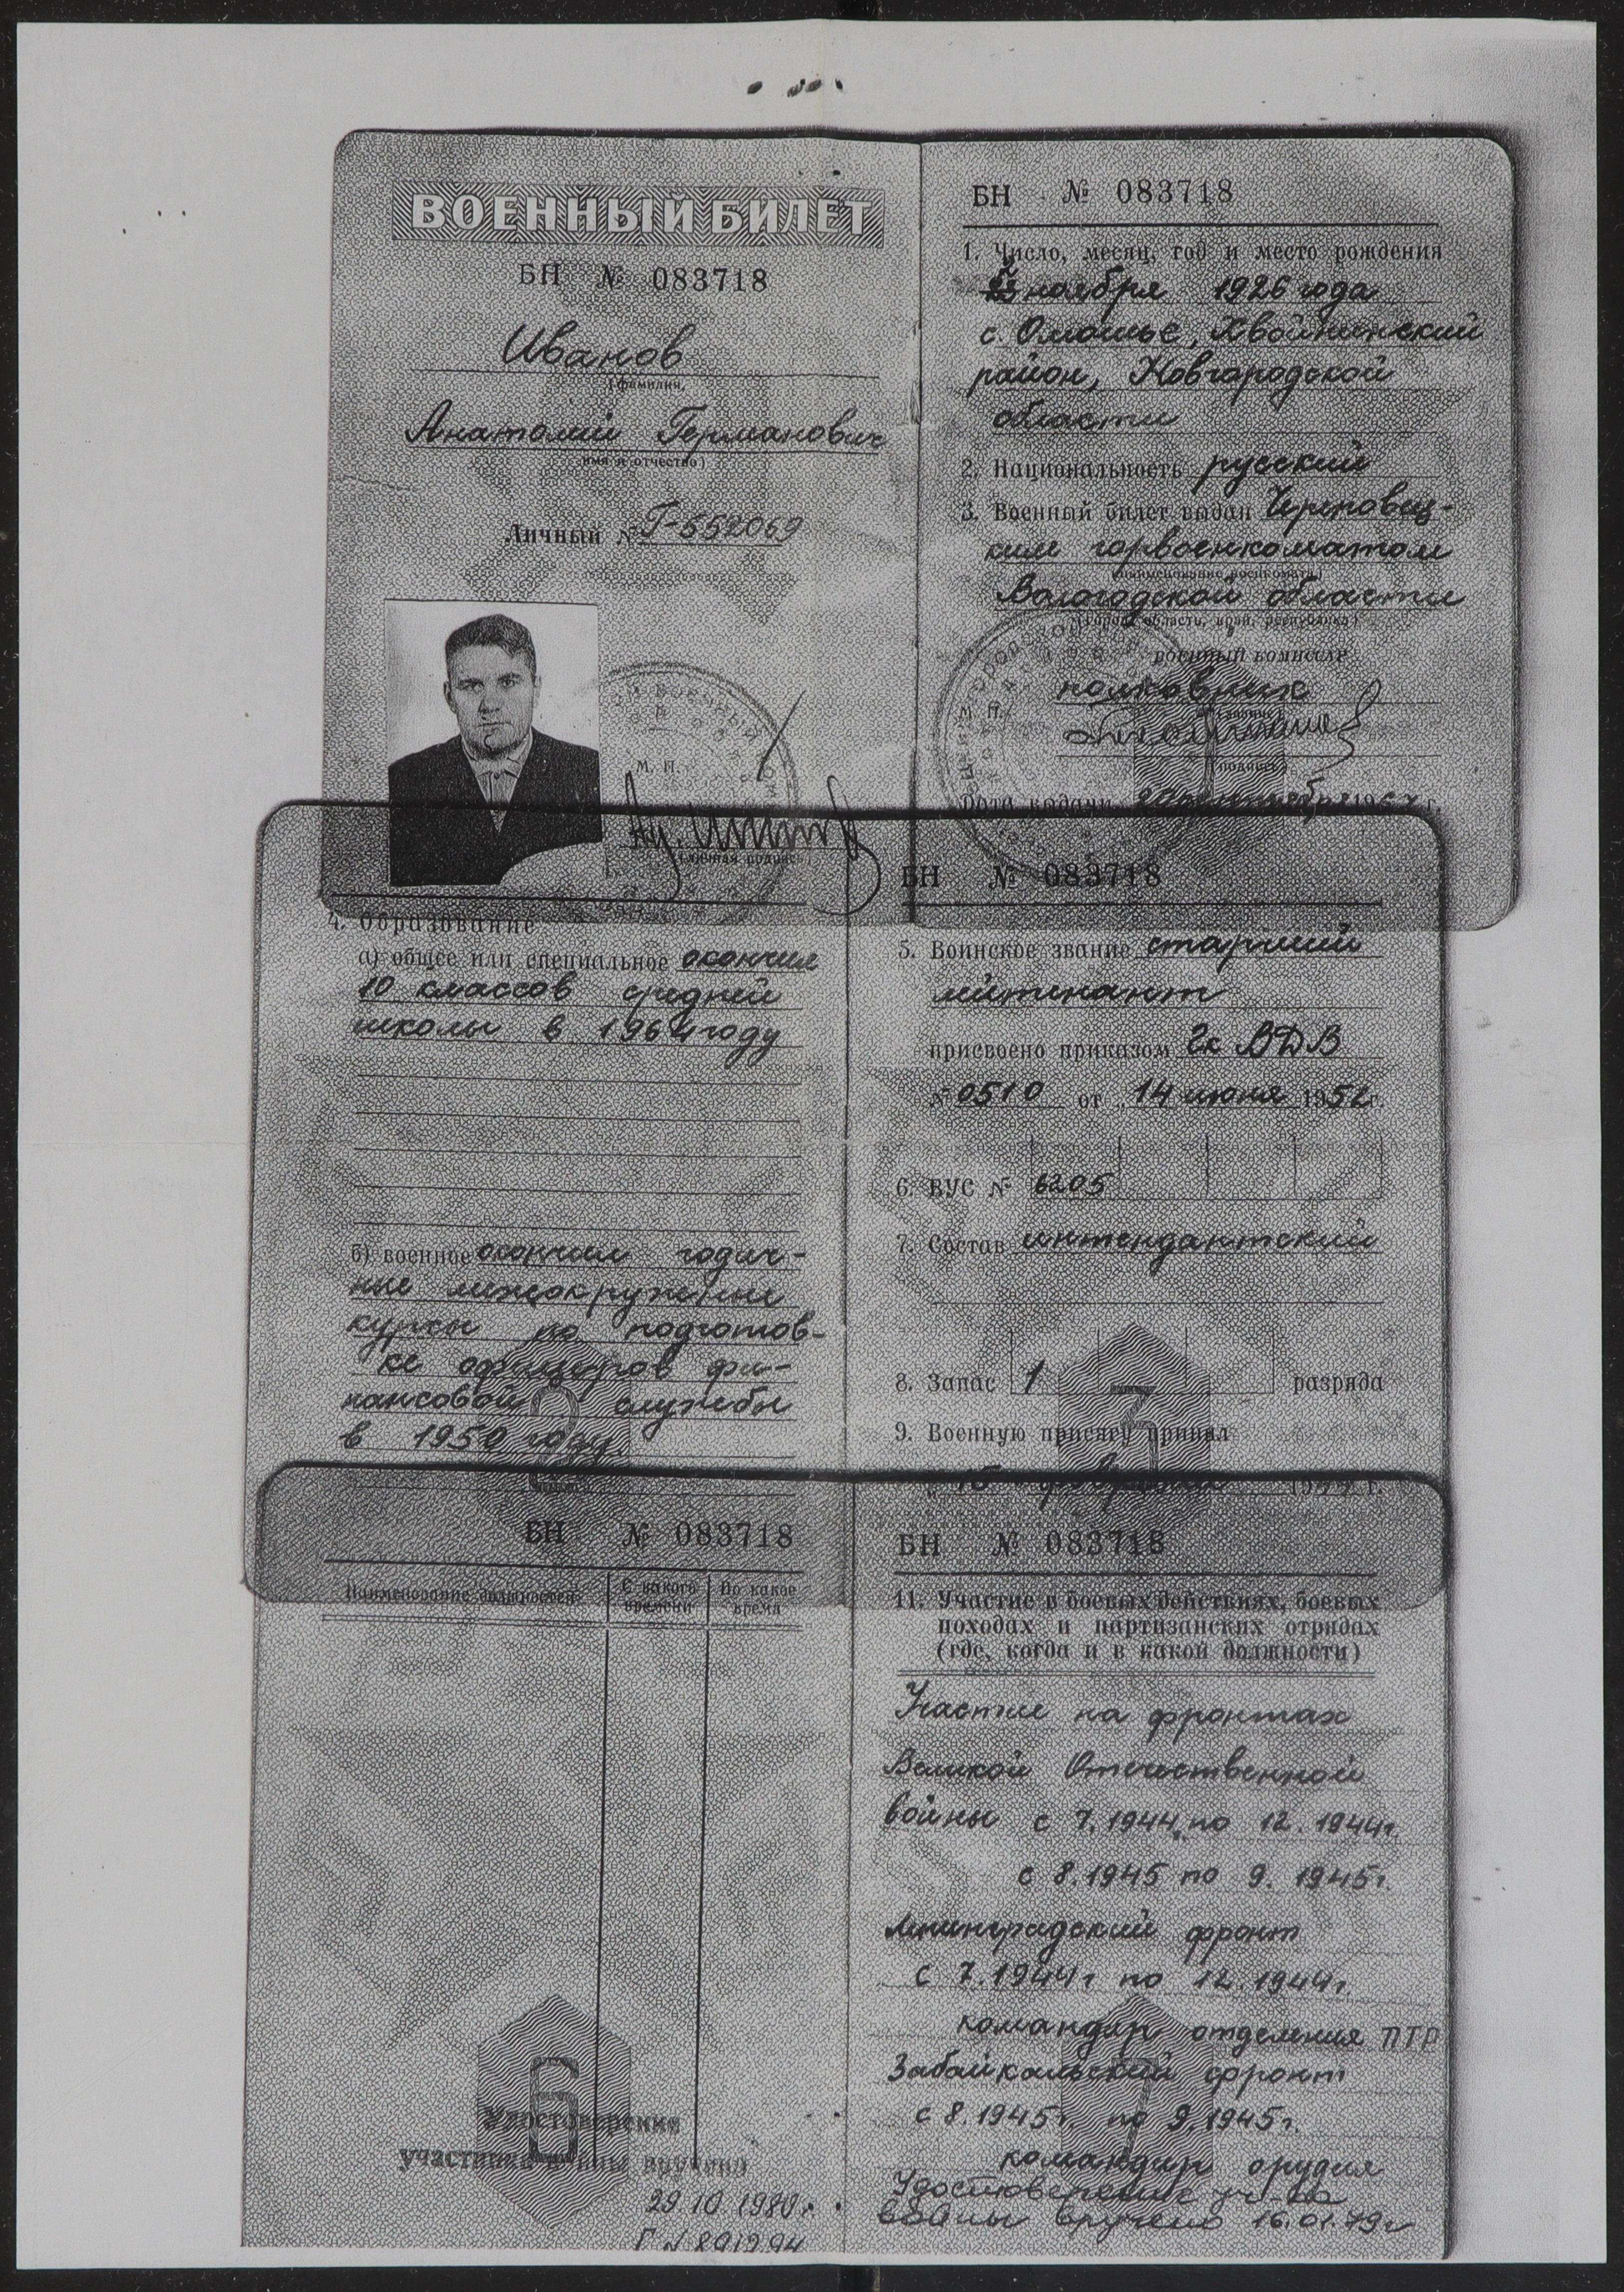 ВОЕННЫЙ БИЛЕТ
БН № 083718
Иванов
(фамилия,
Анатолий Германович
имя и отчество)
Личный № Г-552069
М. П.
(личная подпись)
БН № 083718
1. Число, месяц, год и место рождения
ноября 1926 года
с. Омошье, Хвойнинский
район, Новгородской
области
2. Национальность русский
3. Военный билет выдан Черновец-
ким горвоенкоматом
(наименование военкомата)
Вологодской области
(город, область, край, республика)
ВОЕННЫЙ КОМИССАР
полковник
М. П.
(подпись)
Дата выдачи
БН № 083718
4. Образование
а) общее или специальное окончил
10 классов средней
школы в 1964 году
б) военное окончил годич-
ные межокружные
курсы по подготов-
ке офицеров фи-
нансовой службы
в 1950 году.
5. Воинское звание старший
лейтенант
присвоено приказом Гк ВДВ
№ 0510 от „14 июня 1952г.
6. ВУС № 6205
7. Состав интендантский
8. Запас 1 разряда
9. Военную присягу принял
3
БН № 083718
Наименование должностей
С какого времени
По какое время
6
Удостоверение
участника войны вручено
29.10.1980г.
Г № 891294
БН № 083718
11. Участие в боевых действиях, боевых
походах и партизанских отрядах
(где, когда и в какой должности)
Участие на фронтах
Великой Отечественной
войны с 7.1944 по 12.1944г.
с 8.1945 по 9.1945г.
Ленинградский фронт
с 7.1944г по 12.1944г.
командир отделения ПТР
Забайкальский фронт
с 8.1945г. по 9.1945г.
командир орудия
Удостоверение уч-ка
войны вручено 16.01.79г